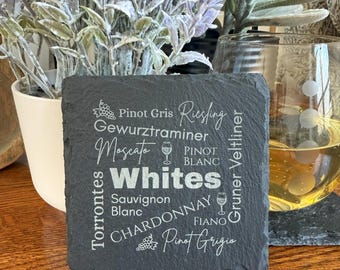 Pinot Gris
Riesling
Gewurztraminer
Moscato
PINOT
BLANC
Whites
Torrontes
Gruner Veltliner
Sauvignon
Blanc
CHARDONNAY
FIANO
Pinot Grigio